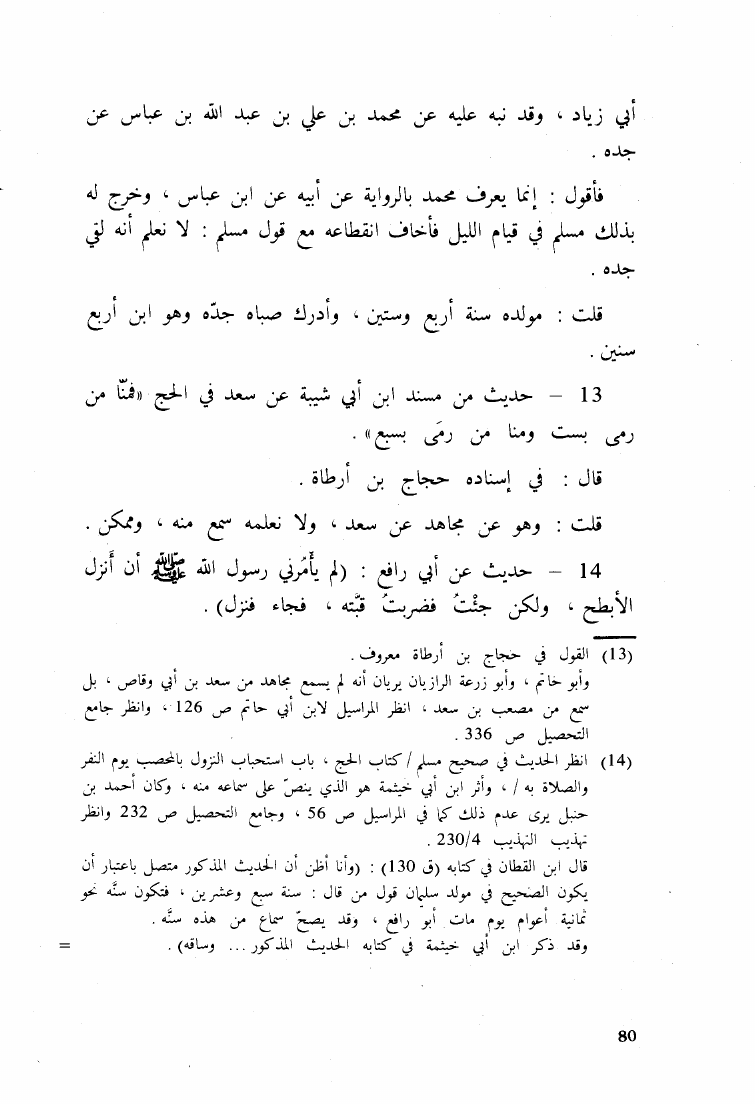 أبي زياد ، وقد نبه عليه عن محمد بن علي بن عبد الله بن عباس عن
جده .
فأقول : إنما يعرف محمد بالرواية عن أبيه عن ابن عباس ، وخرج له
بذلك مسلم في قيام الليل فأخاف انقطاعه مع قول مسلم : لا نعلم أنه لقي
جده .
قلت : مولده سنة أربع وستين ، وأدرك صباه جدّه وهو ابن أربع
سنين .
13 – حديث من مسند ابن أبي شيبة عن سعد في الحج «فمنّا من
رمى بست ومنا من رمَى بسبع» .
قال : في إسناده حجاج بن أرطاة .
قلت : وهو عن مجاهد عن سعد ، ولا نعلمه سمع منه ، وممكن .
14 – حديث عن أبي رافع : (لم يأمُرني رسول الله ﷺ أن أنزل
الأبطح ، ولكن جئْتُ فضربتُ قبّته ، فجاء فنزل) .
(13) القول في حجاج بن أرطاة معروف .
وأبو حاتم ، وأبو زرعة الرازيان يريان أنه لم يسمع مجاهد من سعد بن أبي وقاص ، بل
سمع من مصعب بن سعد ، انظر المراسيل لابن أبي حاتم ص 126 ، وانظر جامع
التحصيل ص 336 .
(14) انظر الحديث في صحيح مسلم / كتاب الحج ، باب استحباب النزول بالمحصب يوم النفر
والصلاة به / ، وأثر ابن أبي خيثمة هو الذي ينصّ على سماعه منه ، وكان أحمد بن
حنبل يرى عدم ذلك كما في المراسيل ص 56 ، وجامع التحصيل ص 232 وانظر
تهذيب التهذيب 230/4 .
قال ابن القطان في كتابه (ق 130) : (وأنا أظن أن الحديث المذكور متصل باعتبار أن
يكون الصحيح في مولد سليمان قول من قال : سنة سبع وعشرين ، فتكون سنّه نحو
ثمانية أعوام يوم مات أبو رافع ، وقد يصحّ سماع من هذه سنّه .
وقد ذكر ابن أبي خيثمة في كتابه الحديث المذكور ... وساقه) . =
80